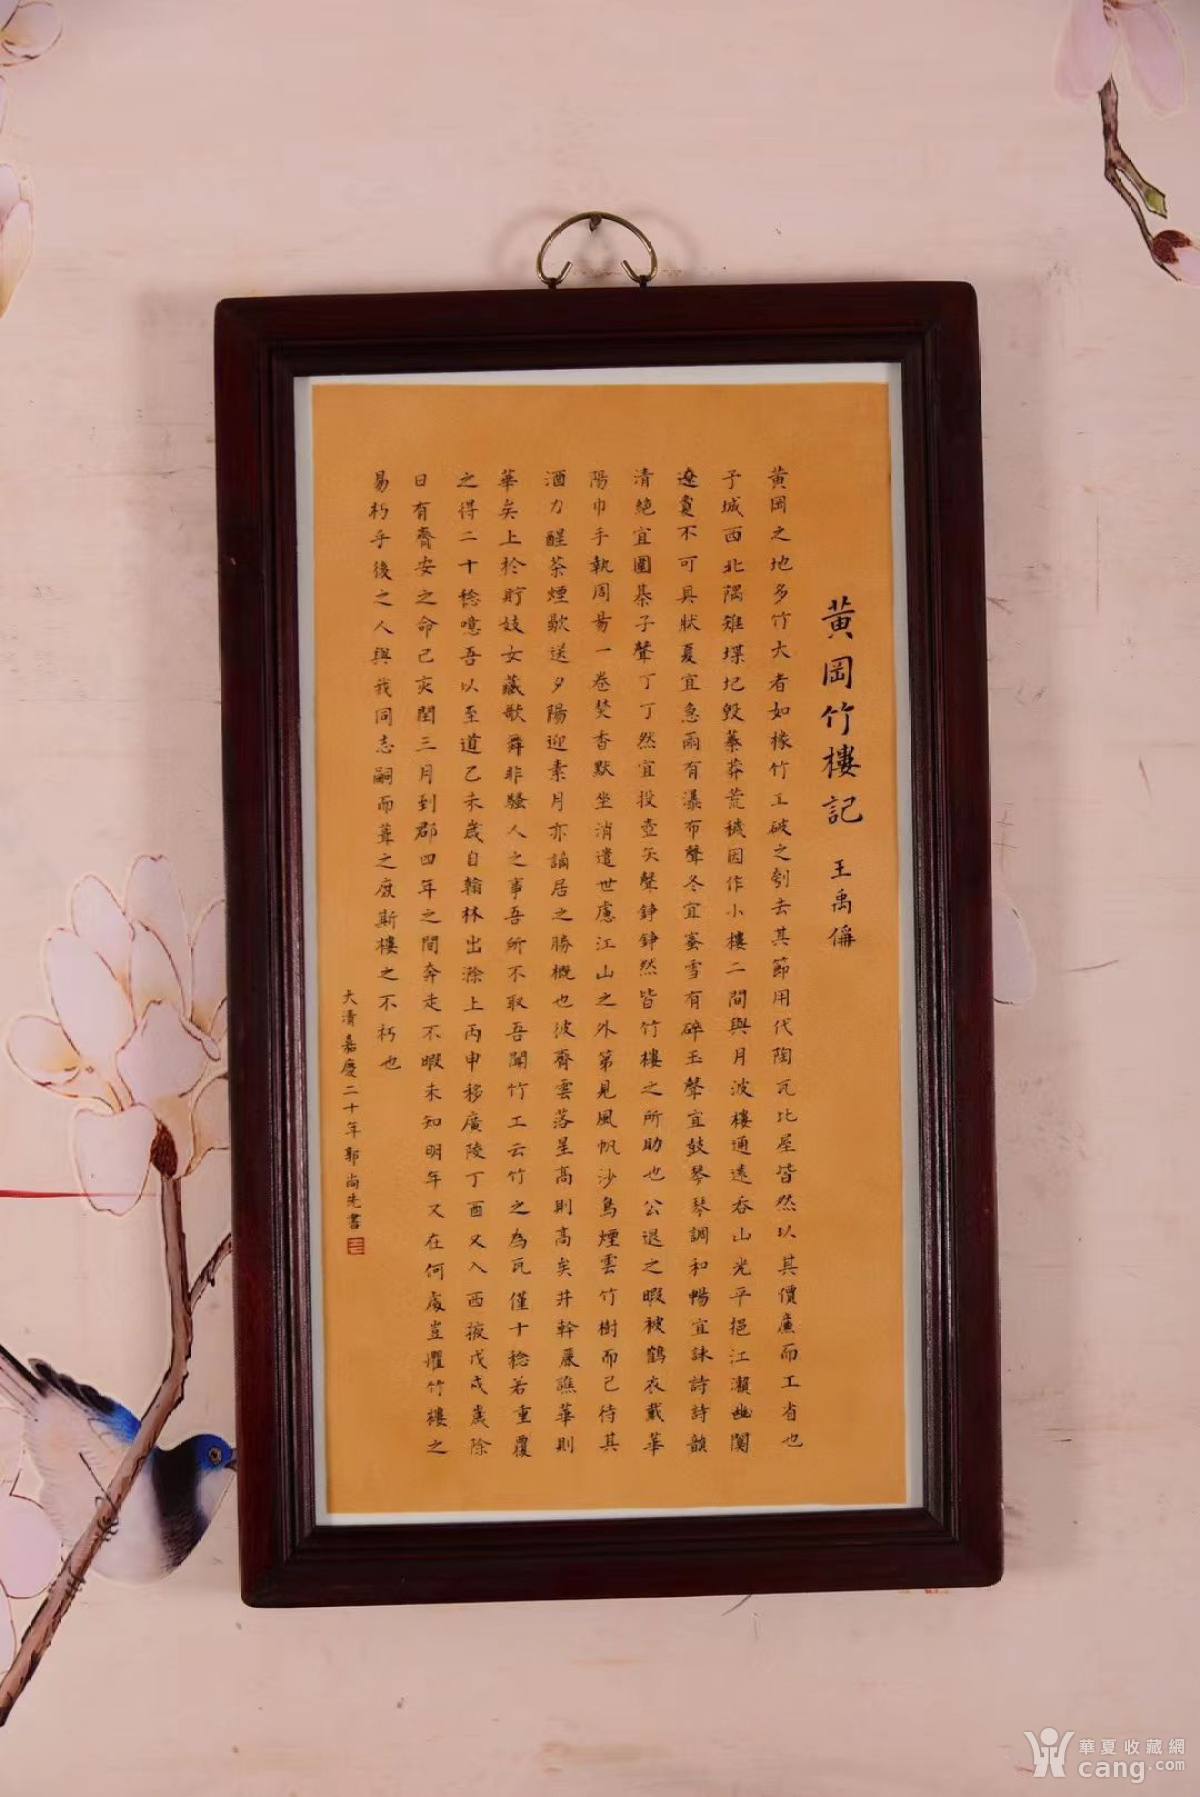 黃岡竹樓記 王禹偁
黃岡之地多竹大者如椽竹工破之刳去其節用代陶瓦比屋皆然以其價廉而工省也
子城西北隅雉堞圮毀蓁莽荒穢因作小樓二間與月波樓通遠吞山光平挹江瀨幽闃
遼夐不可具狀夏宜急雨有瀑布聲冬宜密雪有碎玉聲宜鼓琴琴調和暢宜詠詩詩韻
清絕宜圍棊子聲丁丁然宜投壺矢聲錚錚然皆竹樓之所助也公退之暇被鶴衣戴華
陽巾手執周易一卷焚香默坐消遣世慮江山之外第見風帆沙鳥煙雲竹樹而已待其
酒力醒茶煙歇送夕陽迎素月亦謫居之勝概也彼齊雲落星高則高矣井幹麗譙華則
華矣止於貯妓女藏歌舞非騷人之事吾所不取吾聞竹工云竹之為瓦僅十稔若重覆
之得二十稔噫吾以至道乙未歲自翰林出滁上丙申移廣陵丁酉又入西掖戊戌歲除
日有齊安之命己亥閏三月到郡四年之間奔走不暇未知明年又在何處豈懼竹樓之
易朽乎後之人與我同志嗣而葺之庶斯樓之不朽也
大清嘉慶二十年郭尚先書
華夏收藏網
cang.com